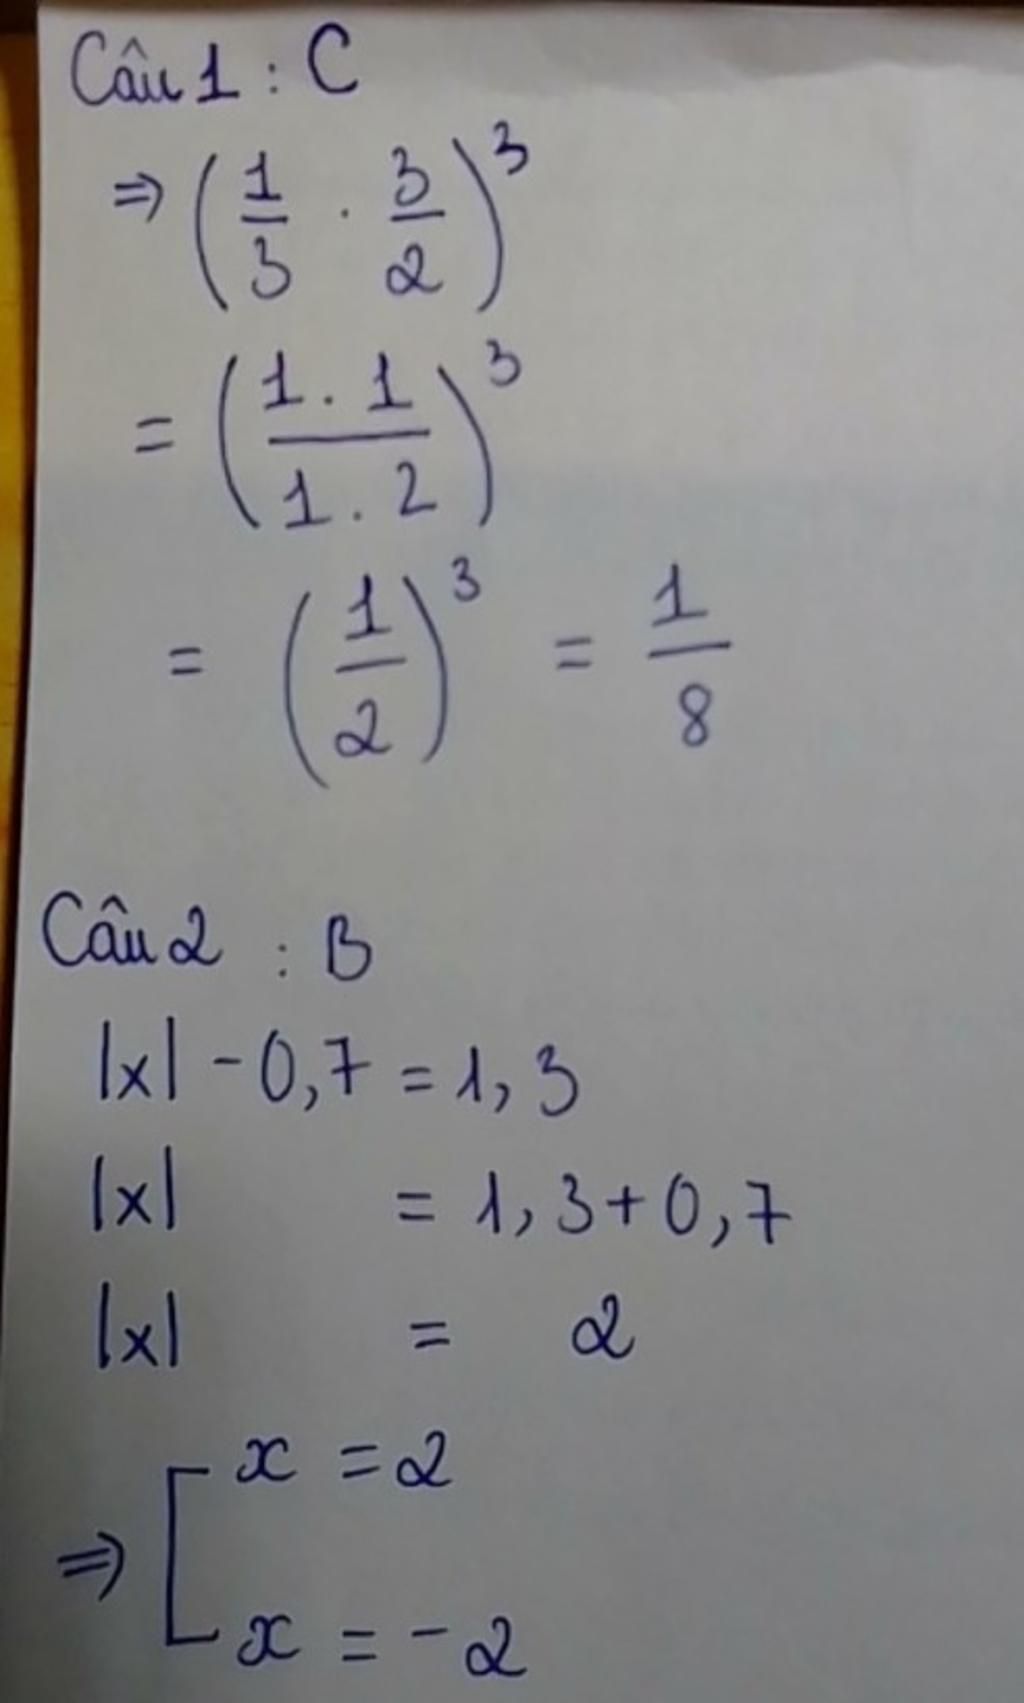 Câu 1 : C
⇒ (1/3 . 3/2)³
= (1 . 1 / 1 . 2)³
= (1/2)³ = 1/8
Câu 2 : B
|x| - 0,7 = 1,3
|x| = 1,3 + 0,7
|x| = 2
⇒ [ x = 2
x = -2